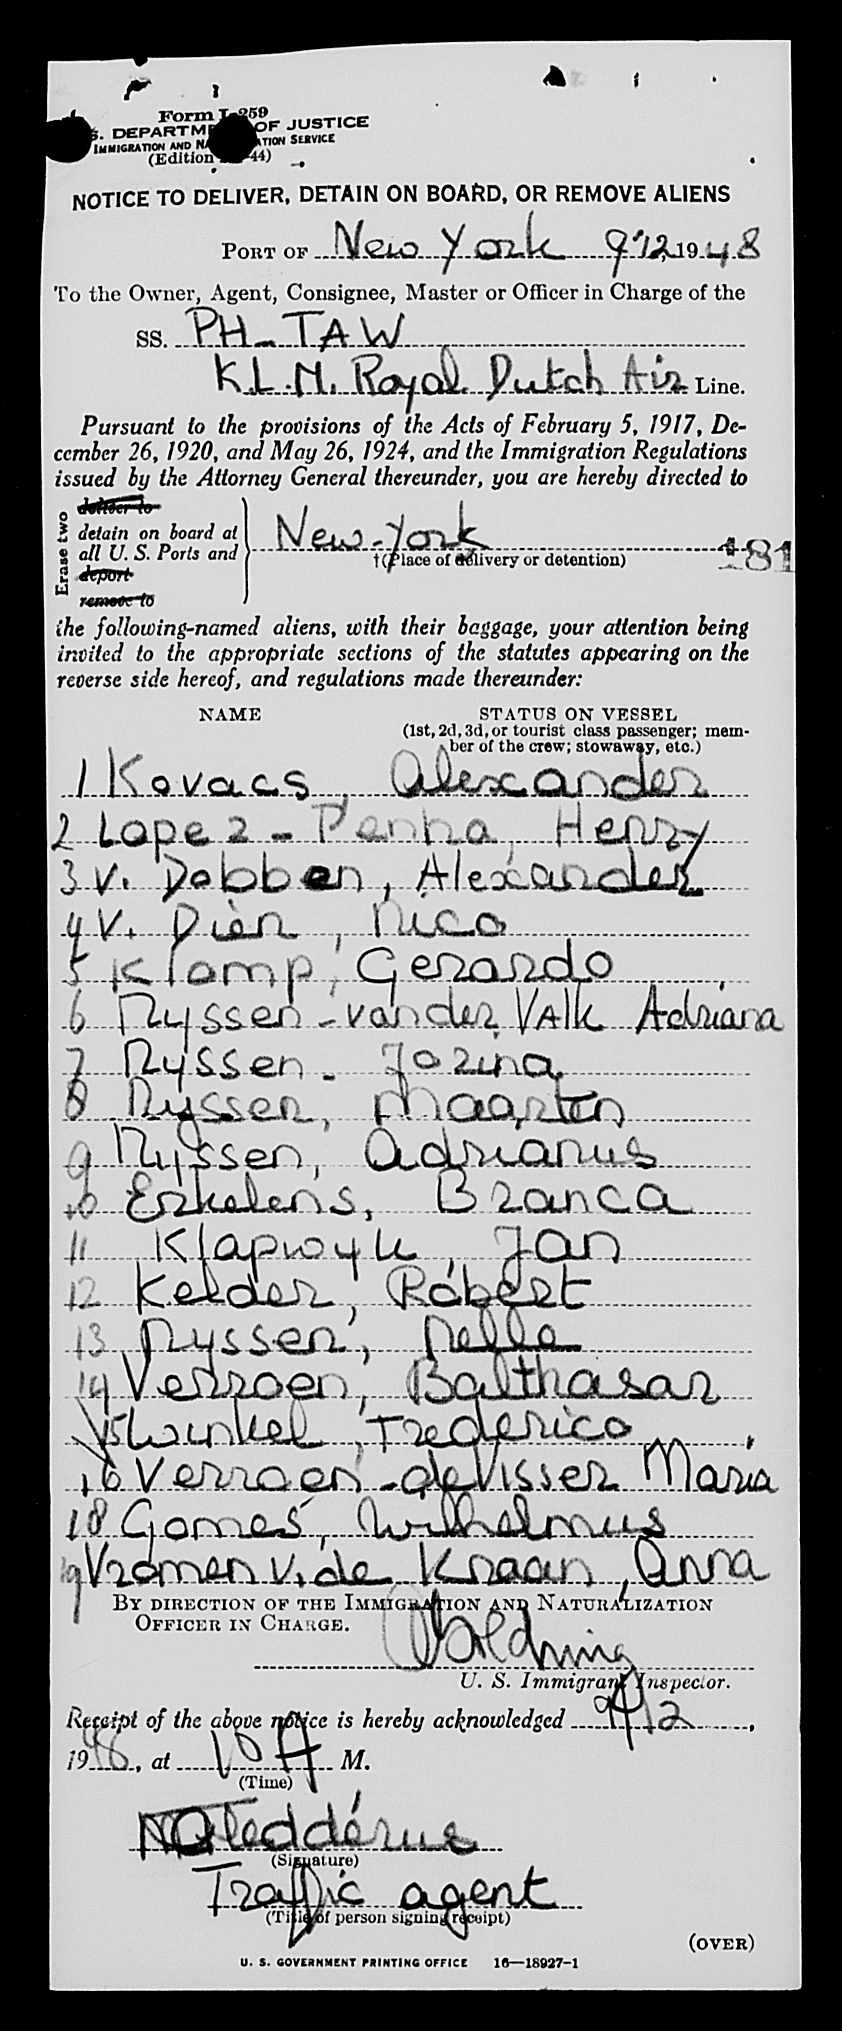 Form I-259
S. DEPARTM OF JUSTICE
IMMIGRATION AND NA TION SERVICE
(Edition 44)
NOTICE TO DELIVER, DETAIN ON BOARD, OR REMOVE ALIENS
PORT OF New York 9/12, 1948
To the Owner, Agent, Consignee, Master or Officer in Charge of the
SS. PH-TAW
K.L.M. Royal Dutch Air Line.
Pursuant to the provisions of the Acts of February 5, 1917, De-
cember 26, 1920, and May 26, 1924, and the Immigration Regulations
issued by the Attorney General thereunder, you are hereby directed to
Erase two
deliver to
detain on board at
all U. S. Ports and
deport
remove to
New-York
†(Place of delivery or detention)
181
the following-named aliens, with their baggage, your attention being
invited to the appropriate sections of the statutes appearing on the
reverse side hereof, and regulations made thereunder:
NAME STATUS ON VESSEL
(1st, 2d, 3d, or tourist class passenger; mem-
ber of the crew; stowaway, etc.)
1 Kovacs, Alexander
2 Lopez-Penha, Henry
3 v. Dobben, Alexander
4 v. Dien, Nico
5 Klomp, Gerardo
6 Nyssen-vander Valk Adriana
7 Nyssen - Jozina
8 Nyssen, Maarten
9 Nyssen, Adrianus
10 Erkelens, Branca
11 Klapwyk, Jan
12 Kelder, Robert
13 Nyssen, Nella
14 Verroen, Balthasar
15 Winkel, Frederico
16 Verroen-deVisser Maria
18 Gomes, Wilhelmus
19 Vromen v. de Kraan, Anna
BY DIRECTION OF THE IMMIGRATION AND NATURALIZATION
OFFICER IN CHARGE.
U. S. Immigrant Inspector.
Receipt of the above notice is hereby acknowledged 9/12,
1948, at 10 A M.
(Time)
(Signature)
Traffic agent
(Title of person signing receipt)
(OVER)
U. S. GOVERNMENT PRINTING OFFICE 16—18927-1